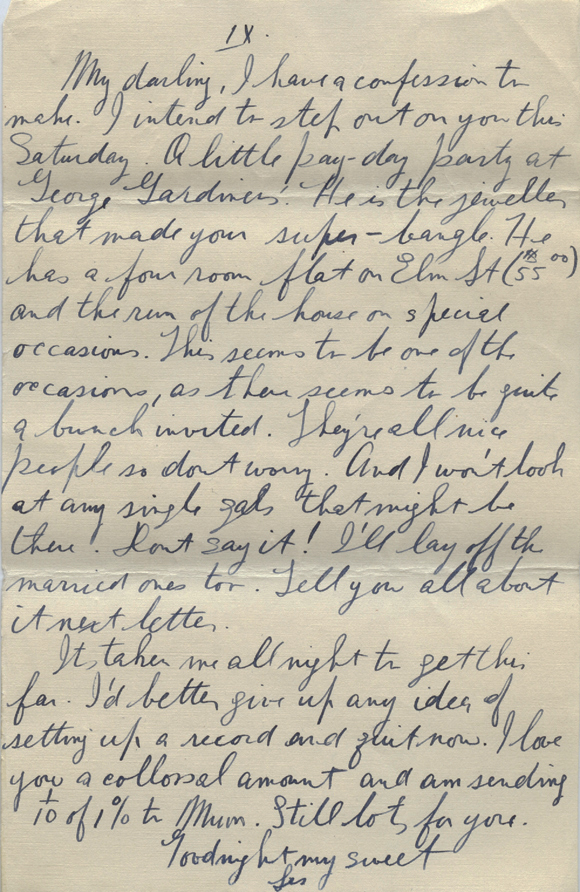 IX.
My darling, I have a confession to
make. I intend to step out on you this
Saturday. A little pay-day party at
George Gardiners'. He is the jeweller
that made your super-bangle. He
has a four room flat on Elm St (55 00)
and the run of the house on special
occasions. This seems to be one of the
occasions, as there seems to be quite
a bunch invited. They're all nice
people so dont worry. And I won't look
at any single gals that might be
there. Dont say it! I'll lay off the
married ones too. Tell you all about
it next letter.
It's taken me all night to get this
far. I'd better give up any idea of
setting up a record and quit now. I love
you a collossal amount and am sending
1/10 of 1% to Mum. Still lots for you.
Goodnight my sweet
Les